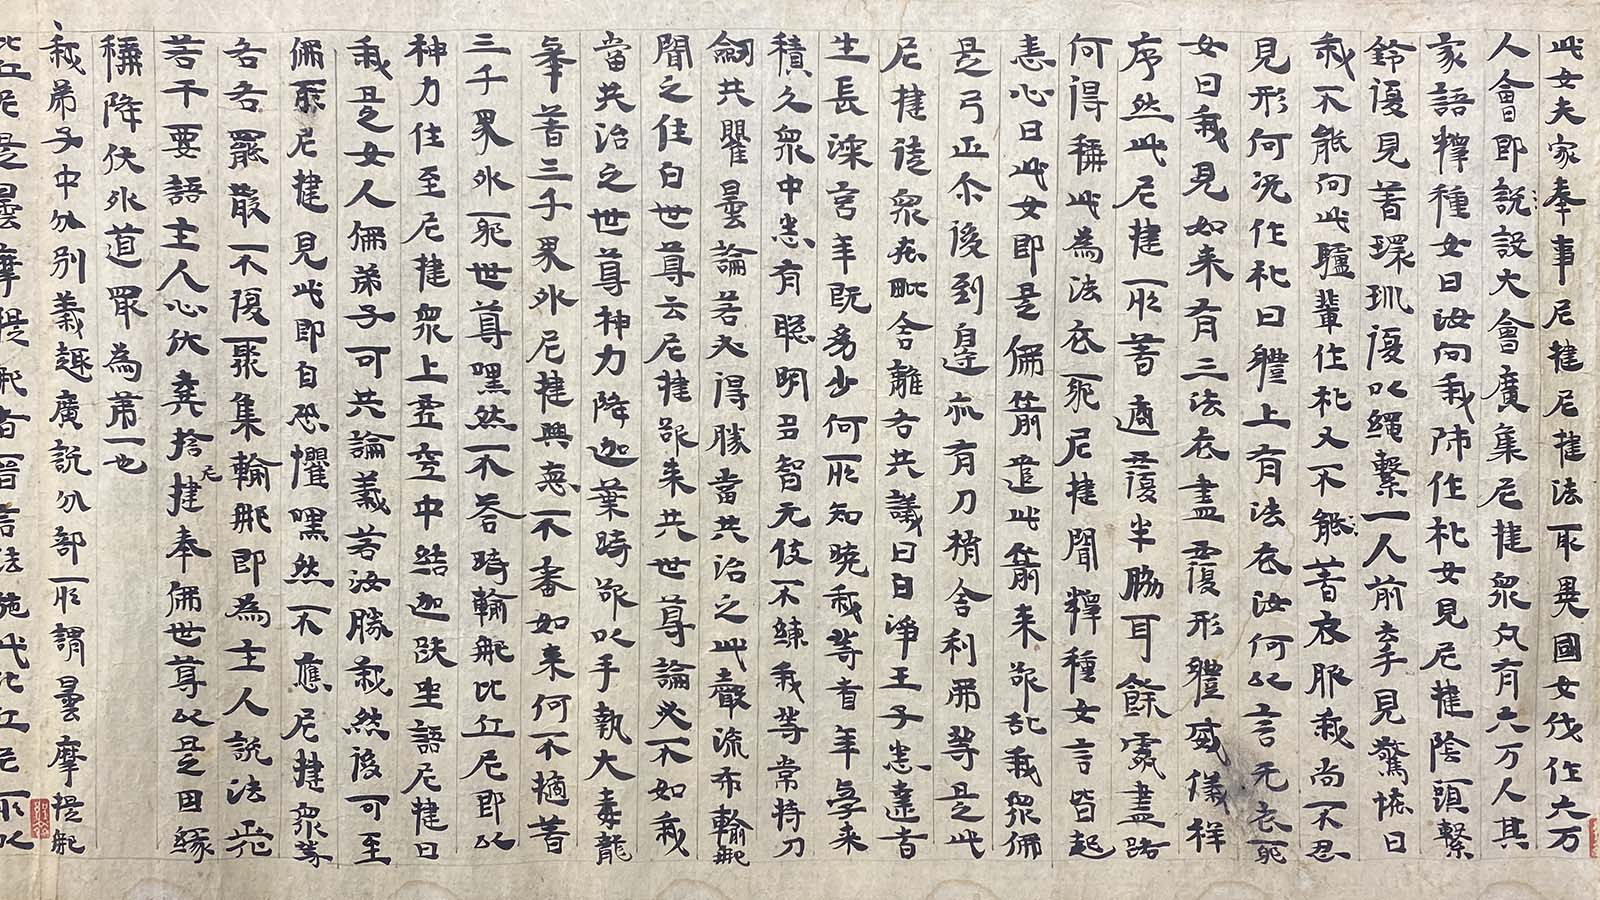 此女夫家奉事尼揵尼揵法取異國女伐作六万
人會即說設大會廣集尼揵眾凡有六万人其
家語釋種女曰汝向我師作礼女見尼揵陰頭繫
鈴復見著環玔復以繩繫一人前牽見驚恠曰
我不能向此驢輩作礼又不能著衣服我尚不忍
見形何況作礼曰體上有法衣汝何以言无衣耶
女曰我見如来有三法衣盡覆形體威儀祥
序然此尼揵所著適覆半脇耳餘露盡露
何得稱此為法衣耶尼揵聞釋種女言皆起
恚心曰此女即是佛箭遣此箭来欲乱我眾佛
是弓正尒後到身邊亦有刀矟舍利弗等是此
尼揵徒眾在毗舍離各共議曰白淨王子悉達者
生長深宮年既㓜少何所知曉我等耆年學来
積久眾中悉有聡明多智无伎不練我等常持刀
劒共瞿曇論若不得勝當共治之此聲流布輸那
聞之往白世尊云尼揵欲来共世尊論必不如我
當共治之世尊神力降迦葉時欲以手執大毒龍
牽著三千界外尼揵興惡不審如来何不擿著
三千界外耶世尊嘿然不荅時輸那比丘尼即以
神力住至尼揵眾上虛空中結迦趺坐語尼揵曰
我是女人佛弟子可共論義若汝勝我然後可至
佛所尼揵見此即自恐懼嘿然不應尼揵眾等
各各罷散不復聚集輸那即為主人說法
若干要語主人心伏棄捨尼揵奉佛世尊以是因緣
稱降伏外道眾為第一也
我弟子中分別義趣廣說分部所謂曇摩提那
比丘尼是曇摩提那者晉言法施此比丘尼所以